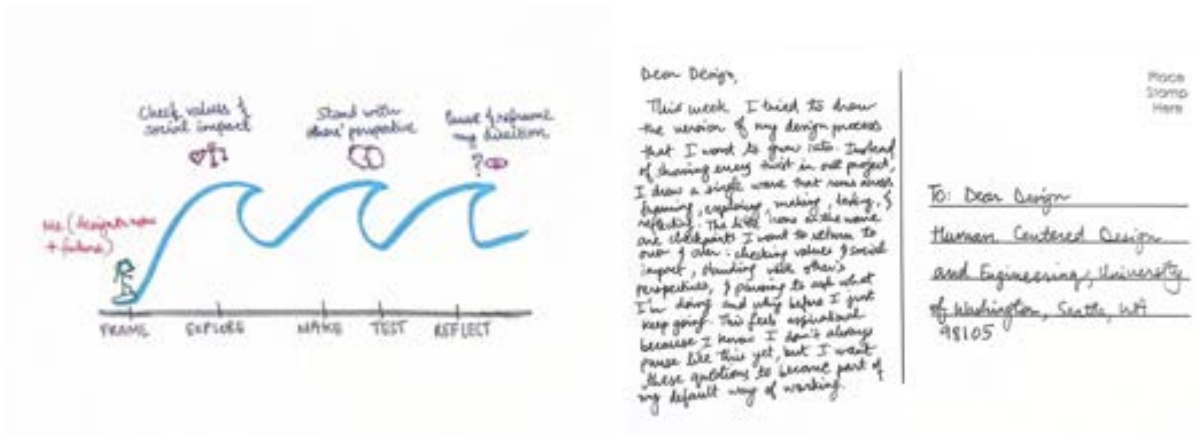 Check values &
social impact
Stand with
others' perspective
Pause & reframe
my direction
?
Me (designer now
+ future)
FRAME
EXPLORE
MAKE
TEST
REFLECT
Dear Design,
This week I tried to draw
the version of my design process
that I want to grow into. Instead
of showing every twist in our project,
I drew a single wave that runs across
framing, exploring, making, testing, &
reflecting. The little icons on the wave
are checkpoints I want to return to
over & over: checking values & social
impact, standing with other's
perspectives, & pausing to ask what
I'm doing and why before I just
keep going. This feels aspirational
because I know I don't always
pause like this yet, but I want
these questions to become part of
my default way of working.
Place
Stamp
Here
To: Dear Design
Human Centered Design
and Engineering, University
of Washington, Seattle, WA
98105